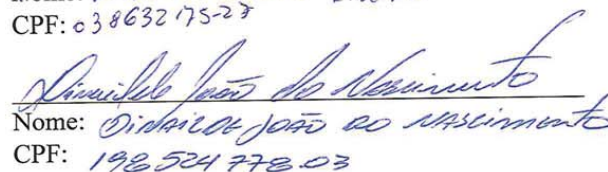 CPF: 038632175-27
João do Nascimento
Nome: DINAILDE JOÃO DO NASCIMENTO
CPF: 198 524 778.03